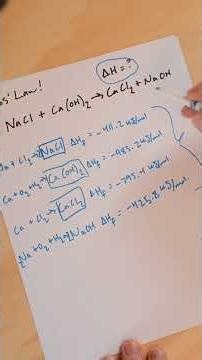 os' Law!
ΔH = ?
NaCl + Ca(OH)₂ → CaCl₂ + NaOH
Na + Cl₂ → NaCl ΔHf = -411.2 kJ/mol
Ca + O₂ + H₂ → Ca(OH)₂ ΔHf = -985.2 kJ/mol
Ca + Cl₂ → CaCl₂ ΔHf = -795.4 kJ/mol
Na + O₂ + H₂ → NaOH ΔHf = -425.8 kJ/mol